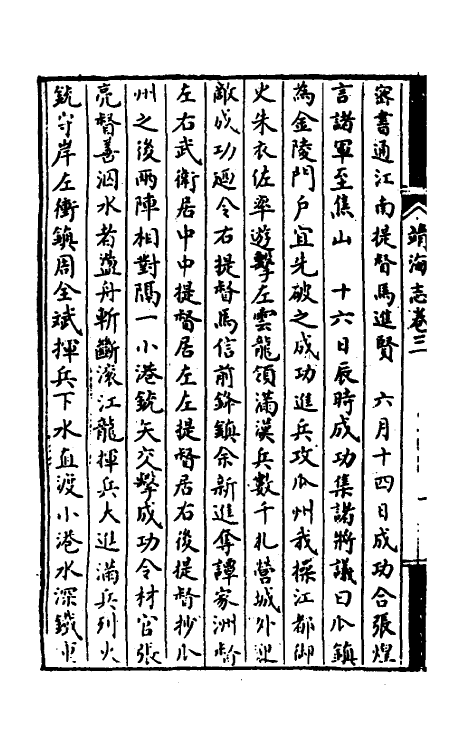 靖海志卷三
一
密書通江南提督馬進賢　六月十四日成功合張煌
言諸軍至焦山　十六日辰時成功集諸將議曰瓜鎮
為金陵門戶宜先破之成功進兵攻瓜州我操江都御
史朱衣佐率遊擊左雲龍領滿漢兵數千札營城外迎
敵成功廼令右提督馬信前鋒鎮余新進奪譚家洲督
左右武衛居中中提督居左左提督居右後提督抄瓜
州之後兩陣相對隔一小港銃矢交擊成功令材官張
亮督善泅水者盪舟斬斷滚江龍揮兵大進滿兵列火
銃守岸左衝鎮周全斌揮兵下水直渡小港水深鐵車